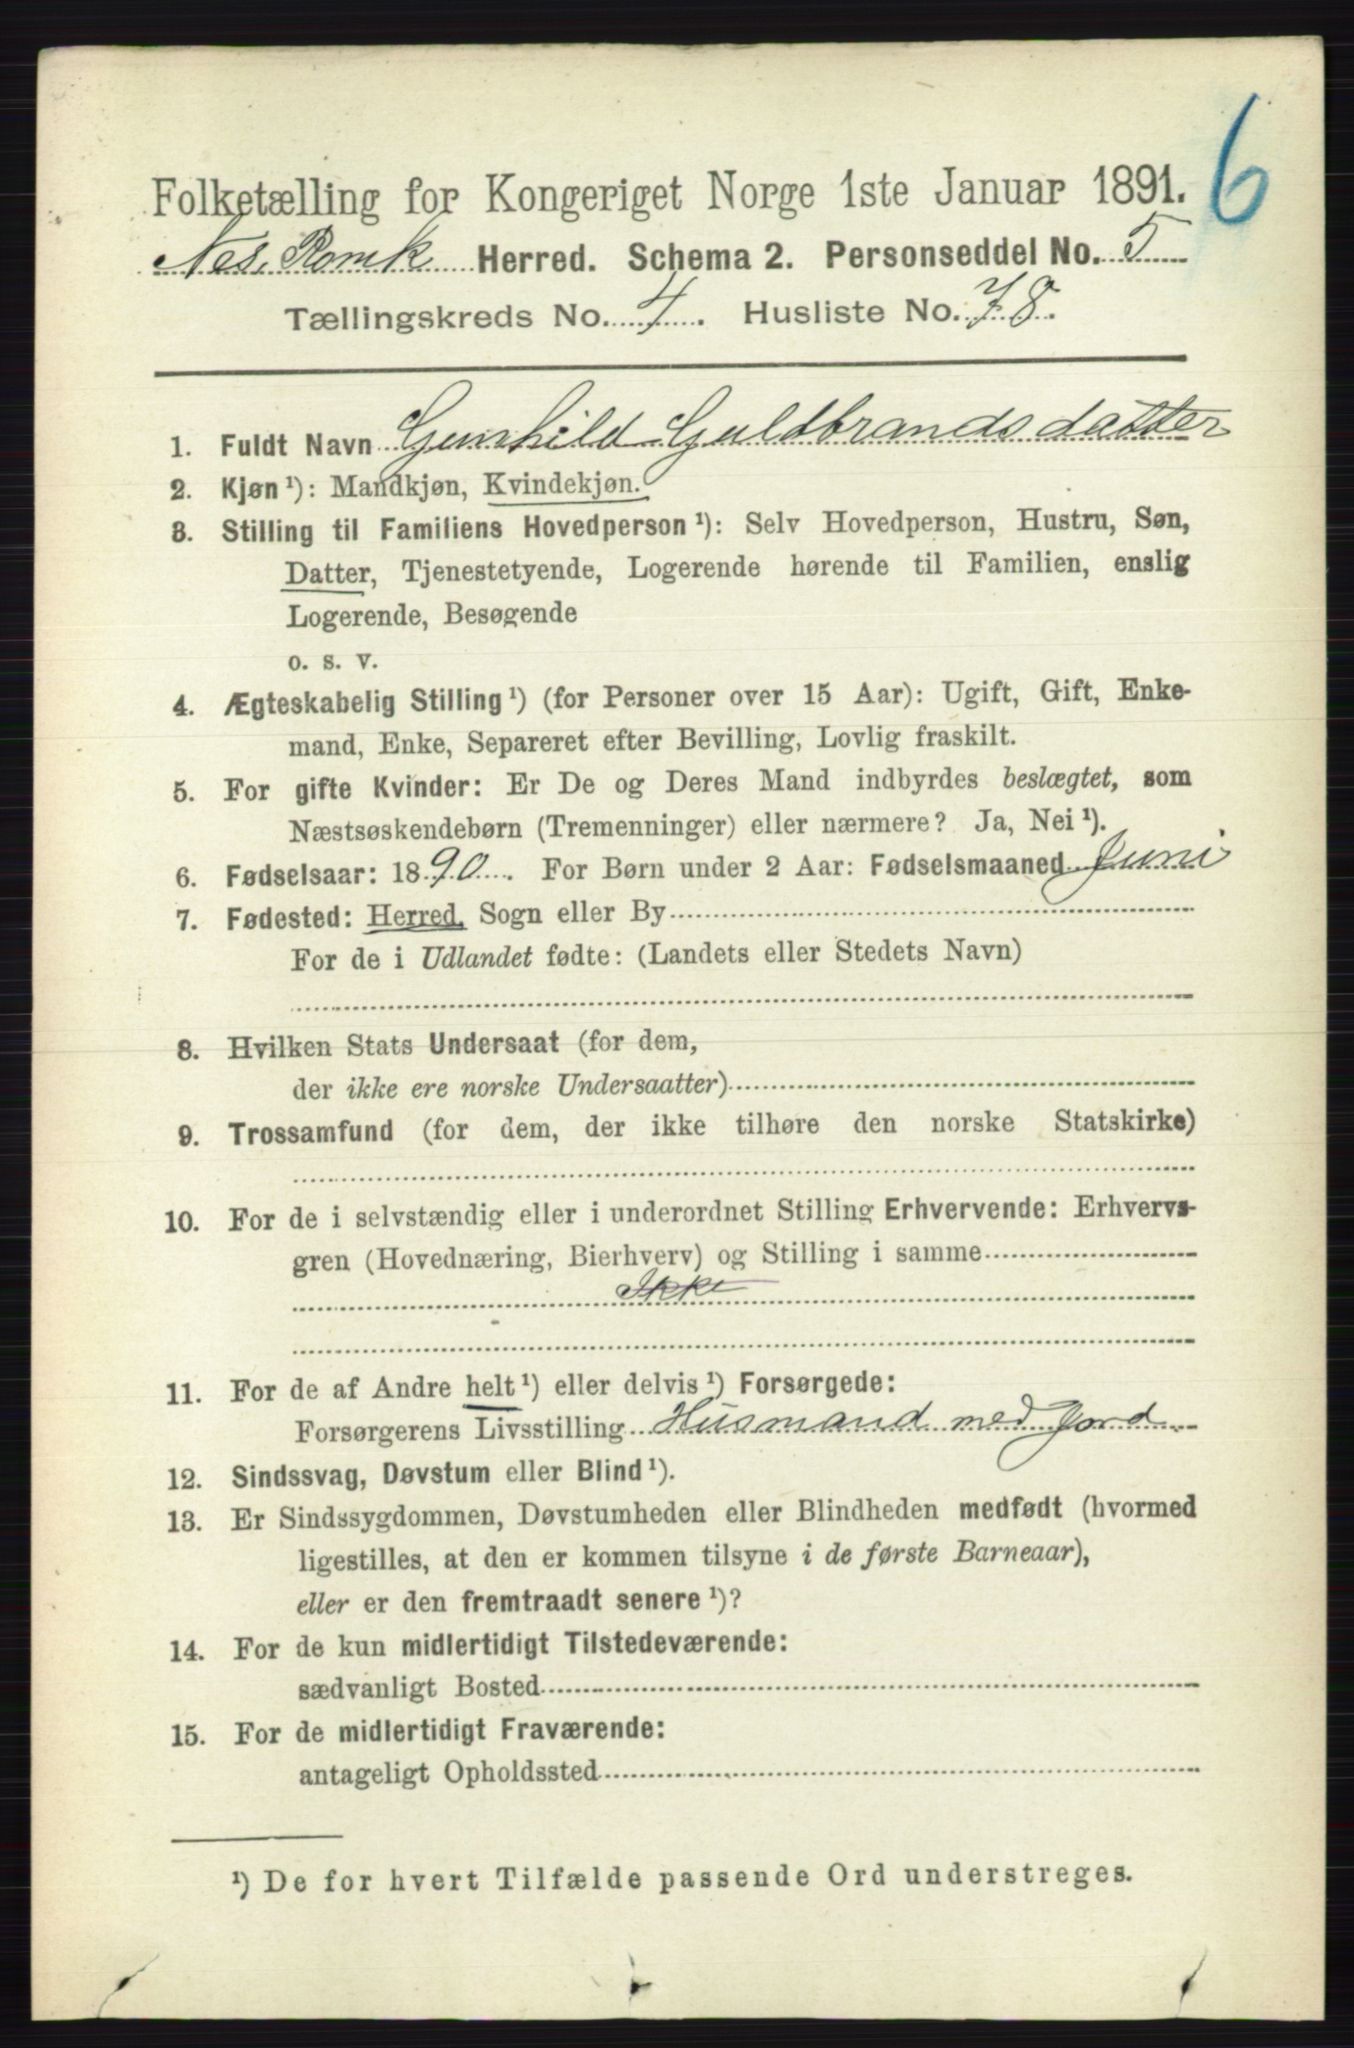 6
Folketælling for Kongeriget Norge 1ste Januar 1891.
Nes, Romk Herred. Schema 2. Personseddel No. 5
Tællingskreds No. 4. Husliste No. 78.
1. Fuldt Navn Gunhild Guldbrandsdatter
2. Kjøn ¹): Mandkjøn, Kvindekjøn.
3. Stilling til Familiens Hovedperson ¹): Selv Hovedperson, Hustru, Søn,
Datter, Tjenestetyende, Logerende hørende til Familien, enslig
Logerende, Besøgende
o. s. v.
4. Ægteskabelig Stilling ¹) (for Personer over 15 Aar): Ugift, Gift, Enke-
mand, Enke, Separeret efter Bevilling, Lovlig fraskilt.
5. For gifte Kvinder: Er De og Deres Mand indbyrdes beslægtet, som
Næstsøskendebørn (Tremenninger) eller nærmere? Ja, Nei ¹).
6. Fødselsaar: 1890. For Børn under 2 Aar: Fødselsmaaned Juni
7. Fødested: Herred, Sogn eller By
For de i Udlandet fødte: (Landets eller Stedets Navn)
8. Hvilken Stats Undersaat (for dem,
der ikke ere norske Undersaatter)
9. Trossamfund (for dem, der ikke tilhøre den norske Statskirke)
10. For de i selvstændig eller i underordnet Stilling Erhvervende: Erhvervs-
gren (Hovednæring, Bierhverv) og Stilling i samme
Ikke
11. For de af Andre helt ¹) eller delvis ¹) Forsørgede:
Forsørgerens Livsstilling Husmand med Jord
12. Sindssvag, Døvstum eller Blind ¹).
13. Er Sindssygdommen, Døvstumheden eller Blindheden medfødt (hvormed
ligestilles, at den er kommen tilsyne i de første Barneaar),
eller er den fremtraadt senere ¹)?
14. For de kun midlertidigt Tilstedeværende:
sædvanligt Bosted
15. For de midlertidigt Fraværende:
antageligt Opholdssted
¹) De for hvert Tilfælde passende Ord understreges.